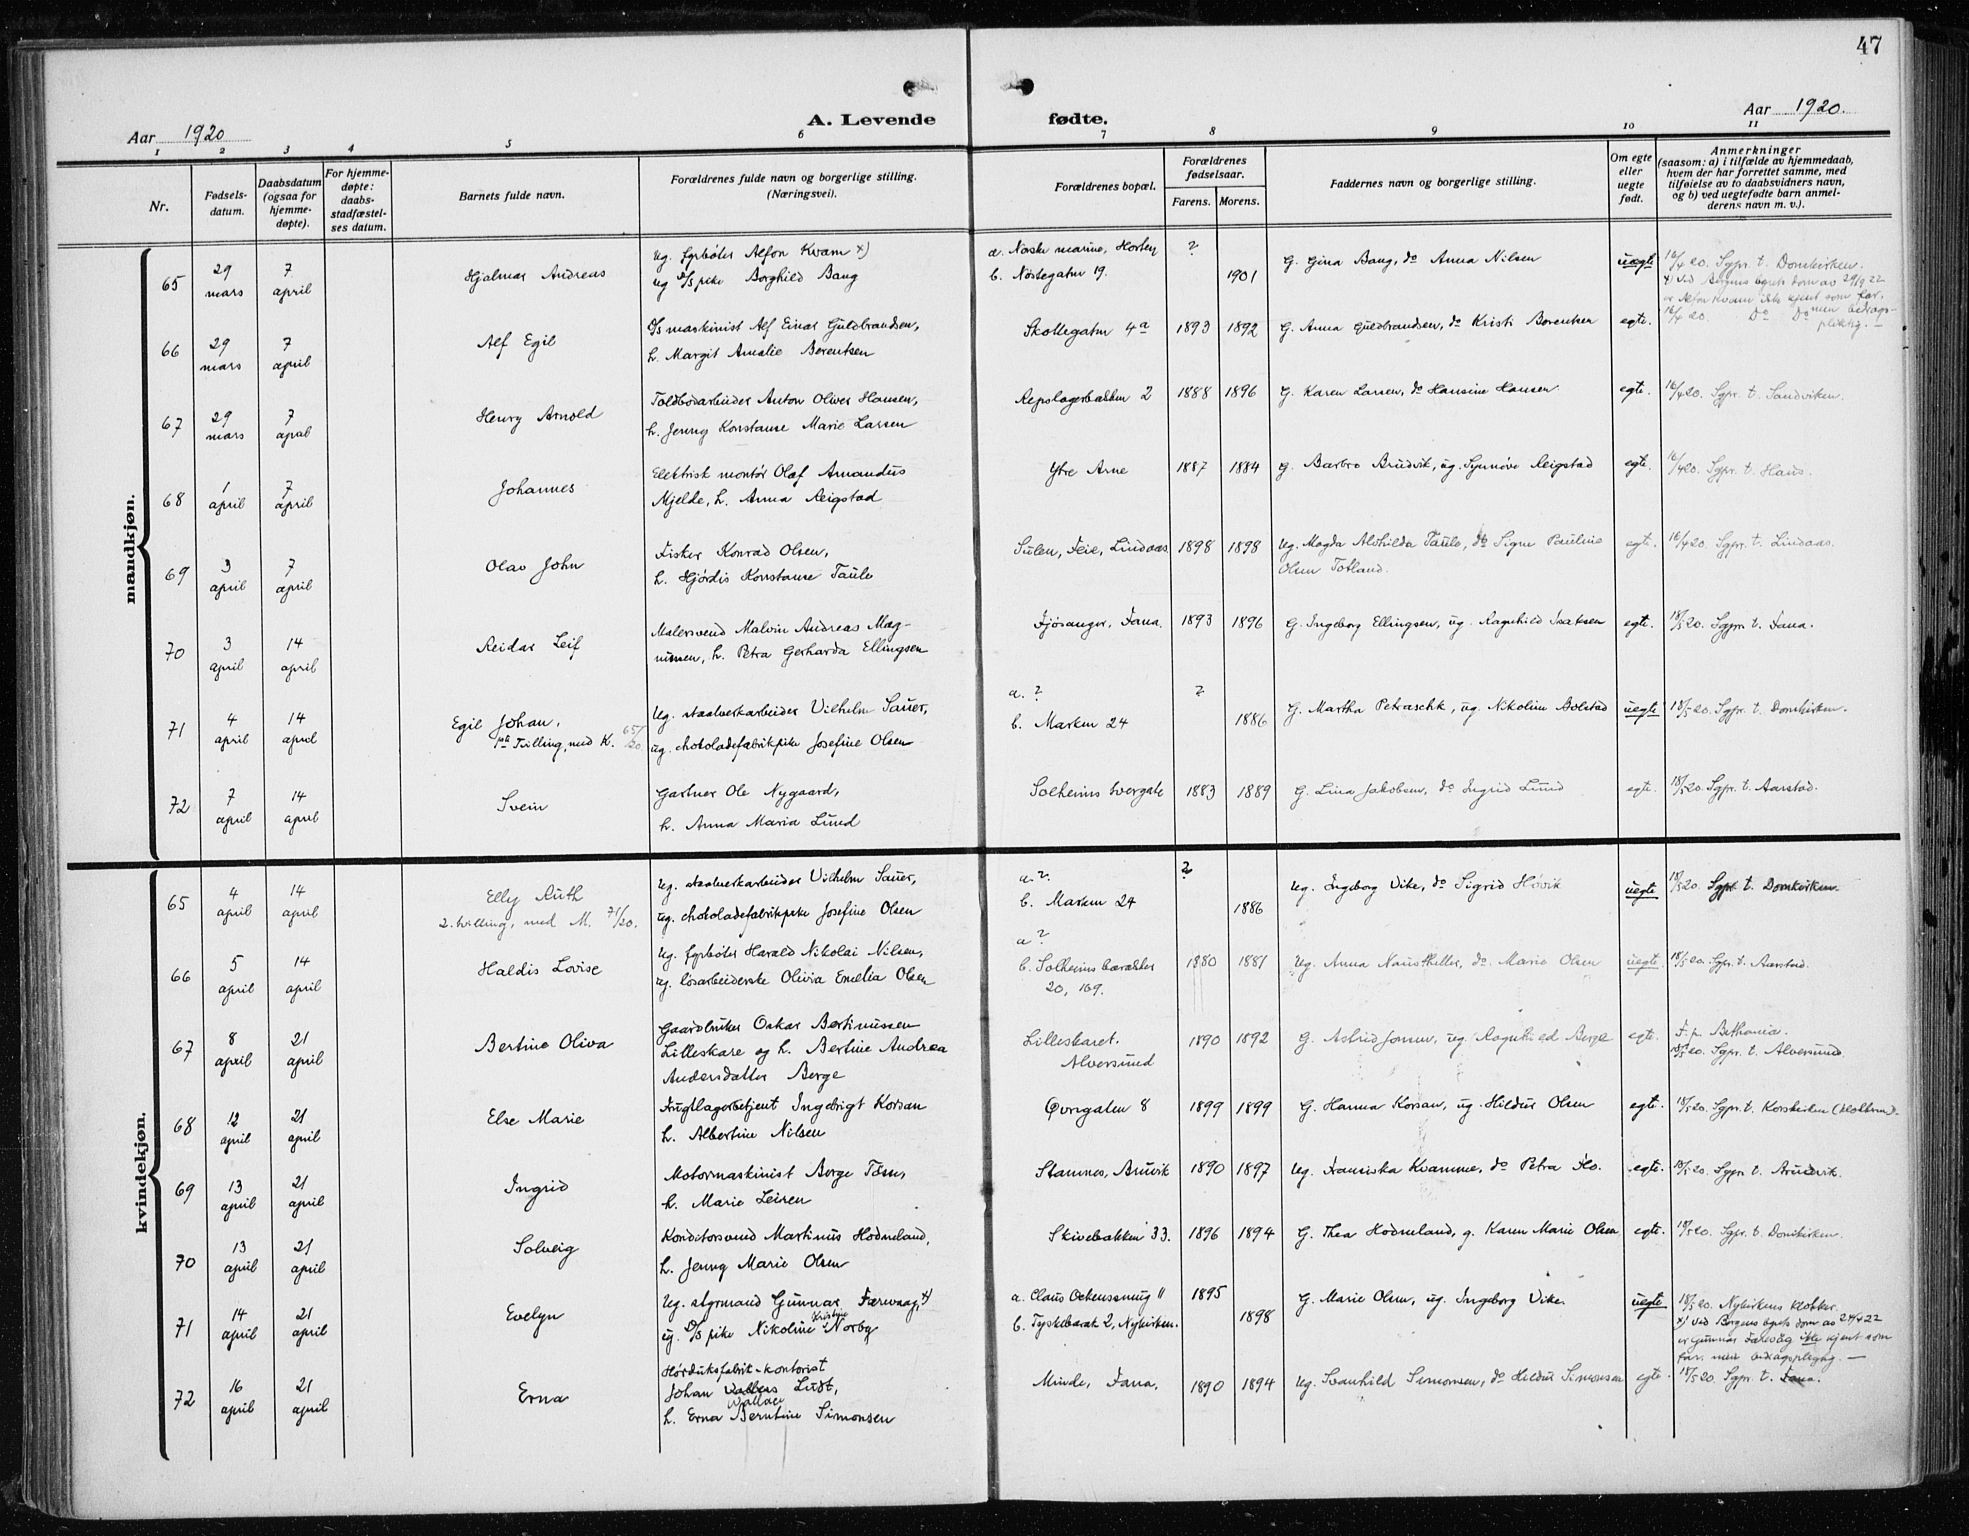 47
Aar 1920
A. Levende fødte.
Aar 1920.
1 2 3 4 5 6 7 8 9 10 11
Nr.
Fødsels-
datum.
Daabsdatum
(ogsaa for
hjemme-
døpte).
For hjemme-
døpte:
daabs-
stadfæstel-
ses datum.
Barnets fulde navn.
Forældrenes fulde navn og borgerlige stilling.
(Næringsvei).
Forældrenes bopæl.
Forældrenes
fødselsaar.
Farens. Morens.
Faddernes navn og borgerlige stilling.
Om egte
eller
uegte
født.
Anmerkninger
(saasom: a) i tilfælde av hjemmedaab,
hvem der har forrettet samme, med
tilføielse av to daabsvidners navn,
og b) ved uegtefødte barn anmel-
derens navn m. v.).
mandkjøn.
65 29 mars 7 april Hjalmar Andreas
Ug. fyrbøter Alfon Kvam x)
ug D/S pike Borghild Bang
a. Norske marine, Horten ?
b. Nøstegatur 19. 1901
G. Gina Bang, do Anna Nilsen uegte
16/4 20. Sgpr. t. Domkirken.
x) Ved Bergens byrets dom av 29/9 22
er Alfon Kvam ikke kjent som far,
men bidrags-
pliktig. —
66 29 mars 7 april Alf Egil
D/S maskinist Alf Einar Guldbrandsen,
h. Margit Amalie Berentsen
Skottegatur 4a 1893 1892 G. Anna Guldbrandsen, do Kristi Berentsen egte. 16/4 20. Do Do
67 29 mars 7 april Henry Arnold
Toldbodarbeider Anton Oliver Hansen,
h. Jenny Konstanse Marie Larsen
Repslagerbakken 2 1888 1896 G. Karen Larsen, do Hansine Hansen egte. 16/4 20. Sgpr. t. Sandviken.
68 1 april 7 april Johannes
Elektrisk montør Olaf Amandus
Mjelde, h. Anna Reigstad
Ytre Arne 1887 1884 G. Barbro Brudvik, ug. Synnøve Reigstad egte. 16/4 20. Sgpr. t. Haus.
69 3 april 7 april Olav John
Fisker Konrad Olsen,
h. Hjørdis Konstanse Taule
Sulen, Feie, Lindaas 1898 1898 Ug. Magda Alvhilda Taule, do Signe Pauline
Olsen Totland. egte. 16/4 20. Sgpr. t. Lindaas.
70 3 april 14 april Reidar Leif
Malersvend Malvin Andreas Mag-
nussen, h. Petra Gerharda Ellingsen
Fjøsanger, Fana. 1893 1896 G. Ingeborg Ellingsen, ug. Ragnhild Isaksen egte. 18/5 20. Sgpr. t. Fana.
71 4 april 14 april Egil Johan,
1ste Tvilling, med K. 65/20
Ug. staalverkarbeider Vilhelm Sauer,
ug. chokoladefabrikpike Josefine Olsen
a. ? ?
b. Marken 24 1886
G. Martha Petraschk, ug. Nikoline Bolstad uegte 18/5 20. Sgpr. t. Domkirken.
72 7 april 14 april Svein
Gartner Ole Nygaard,
h. Anna Maria Lund
Solheims tvergate 1883 1889 G. Lina Jakobsen, do Ingrid Lund egte. 18/5 20. Sgpr. t. Aarstad.
kvindekjøn.
65 4 april 14 april Elly Ruth
2. tvilling, med M. 71/20.
Ug. staalverkarbeider Vilhelm Sauer,
ug. chokoladefabrikpike Josefine Olsen
a. ? ?
b. Marken 24 1886
Ug. Ingeborg Vike, do Sigrid Høvik uegte 18/5 20. Sgpr. t. Domkirken.
66 5 april 14 april Haldis Lovise
Ug. fyrbøter Harald Nikolai Nilsen,
ug. løsarbeiderske Olivia Emelia Olsen
a ?
b. Solheims barakker 1880 1881
20, 169.
Ug. Anna Naustheller, do Marie Olsen uegte. 18/5 20. Sgpr. t. Aarstad.
67 8 april 21 april Bertine Oliva
Gaardbruker Oskar Bertinussen
Lilleskare og h. Bertine Andrea
Andersdatter Berge
Lilleskaret. 1890 1892
Alversund
G. Astrid Jensen, ug. Ragnhild Berge egte. F. p. Bethania.
18/5 20. Sgpr. t. Alversund.
68 12 april 21 april Else Marie
Frugtlagerbetjent Ingebrigt Korsan
h. Albertine Nilsen
Øvregaten 8 1899 1899 G. Hanna Korsan, ug. Hildur Olsen egte. 18/5 20. Sgpr. t. Korskirken
69 13 april 21 april Ingrid
Motormaskinist Berge
h. Marie Leiren
Stamnes, Bruvik 1890 1897 Ug. Fransiska Kvamme, do Petra Flo. egte. 18/5 20. Sgpr. t. Bruvik.
70 13 april 21 april Solveig
Konditorsvend Martinus Hodneland,
h. Jenny Marie Olsen
Skivebakken 33. 1896 1894 G. Thea Hodneland, g. Karen Marie Olsen egte. 18/5 20. Sgpr. t. Domkirken.
71 14 april 21 april Evelyn
Ug. styrmand Gunnar Færevaag, x)
ug. D/S pike Nikoline Kristine Norby
a. Claus Ockenssmug 11 1895
b. Tyskebarak 2, Nykirken. 1898
G. Marie Olsen, ug. Ingeborg Vike. uegte
18/5 20. Nykirkens klokker.
x) Ved Bergens byrets dom av 24/4 22
er Gunnar Færevåg ikke kjent som
far. men bidragspligtig. —
72 16 april 21 april Erna
Hørduksfabrik-kontorist
Johan Wallace Ludt,
h. Erna Berntine Simonsen
Minde, Fana. 1890 1894 Ug. Svanhild Simonsen, do Hildur Simonsen egte. 18/5 20. Sgpr. t. Fana.